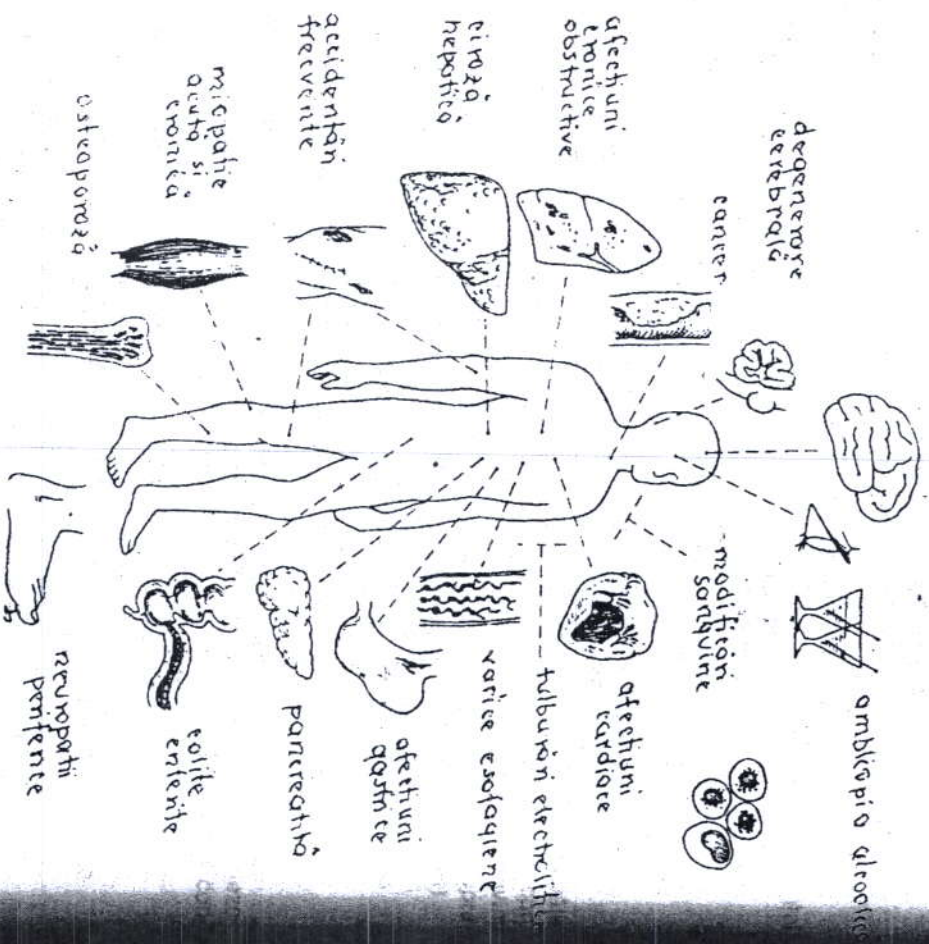 degenerare
cerebrală
cancer
afecțiuni
cronice
obstructive
ciroză
hepatică
accidentări
frecvente
miopatie
acută și
cronică
osteoporoză
ambliopia alcoolică
modificări
sanquine
afecțiuni
cardiace
tulburări electrolitice
varice esofagiene
afecțiuni
gastrice
pancreatită
colite
enterite
neuropatii
periferice